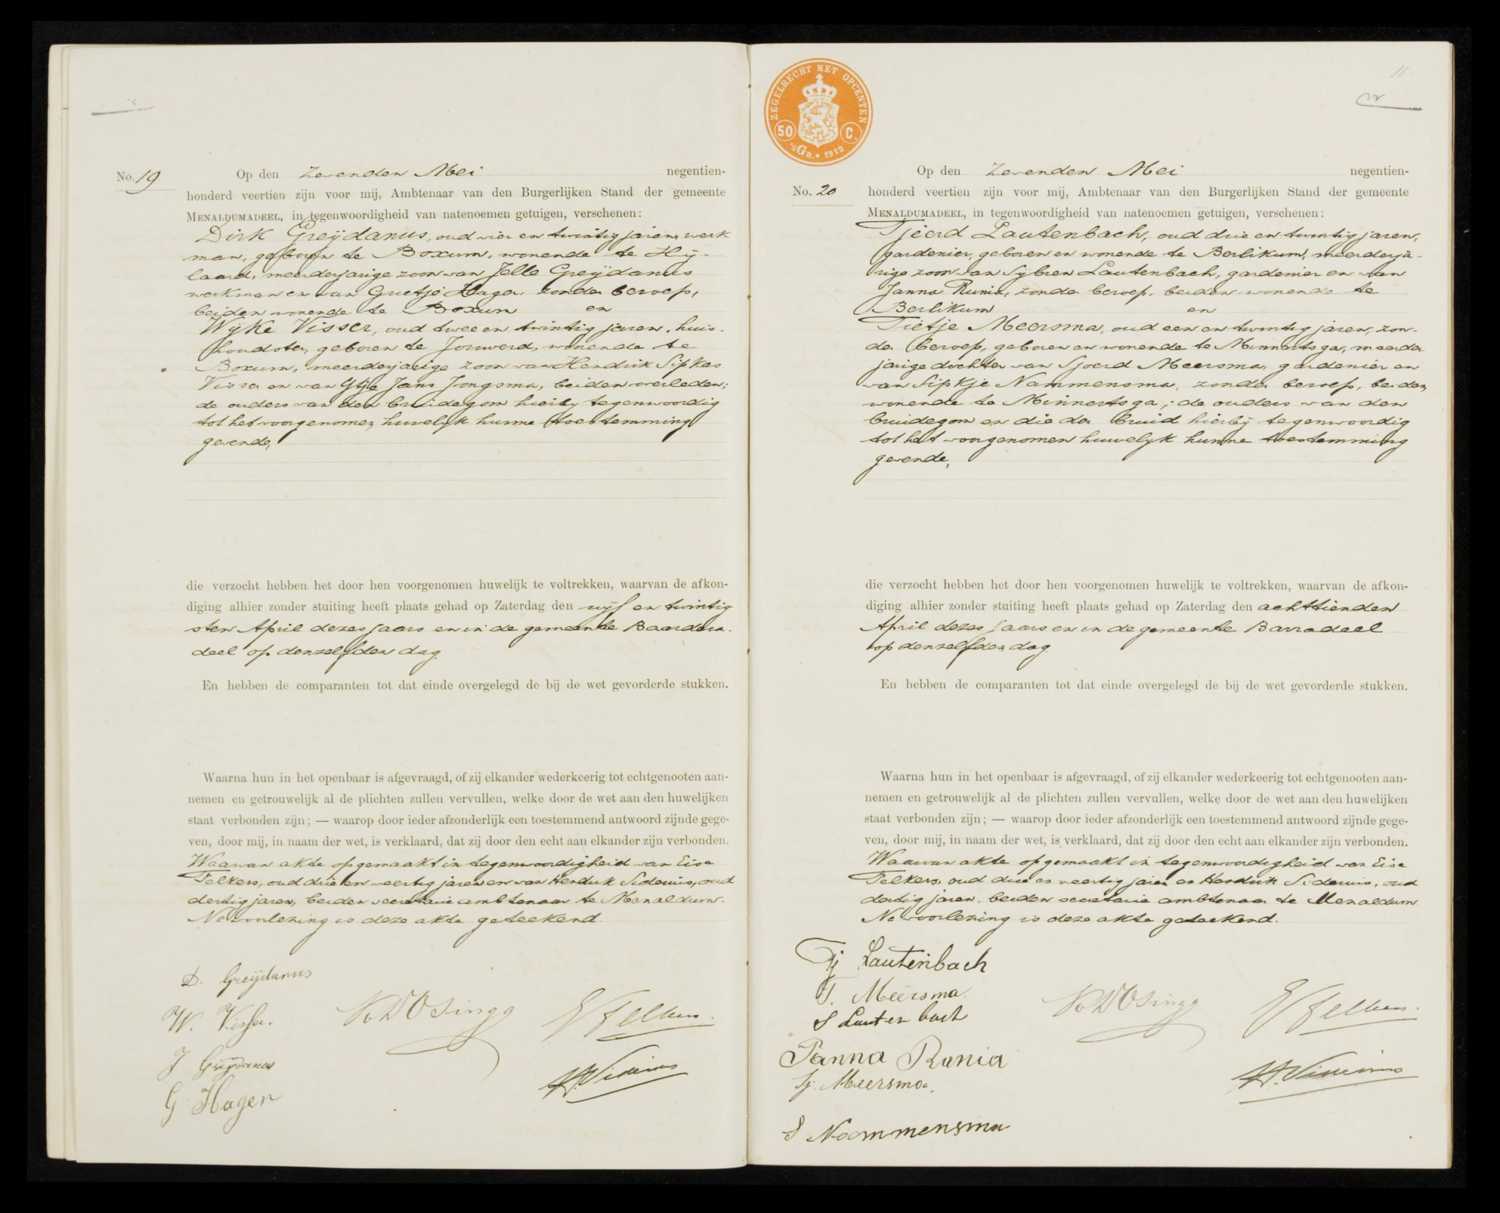 No. 19
Op den zevenden Mei negentien-
honderd veertien zijn voor mij, Ambtenaar van den Burgerlijken Stand der gemeente
MENALDUMADEEL, in tegenwoordigheid van natenoemen getuigen, verschenen:
Dirk Greijdanus, oud vier en twintig jaren, werk
man, geboren te Boxum, wonende te Hij-
laard, meerderjarige zoon van Jelle Greijdanus
werkman en van Grietje Hagen zonder beroep,
beiden wonende te Boxum en
Wijke Visser, oud twee en twintig jaren, huis-
houdster, geboren te Jorwerd, wonende te
Boxum, meerderjarige zoon van Hendrik Sipkes
Visser en van Ytje Jans Jongsma, beiden overleden;
de ouders van den bruidegom hierbij tegenwoordig
tot het voorgenomen huwelijk hunne toestemming
gevende,
die verzocht hebben het door hen voorgenomen huwelijk te voltrekken, waarvan de afkon-
diging alhier zonder stuiting heeft plaats gehad op Zaterdag den vijf en twintig
sten April dezes jaars en in de gemeente Baardera-
deel op denzelfden dag.
En hebben de comparanten tot dat einde overgelegd de bij de wet gevorderde stukken.
Waarna hun in het openbaar is afgevraagd, of zij elkander wederkeerig tot echtgenooten aan-
nemen en getrouwelijk al de plichten zullen vervullen, welke door de wet aan den huwelijken
staat verbonden zijn; — waarop door ieder afzonderlijk een toestemmend antwoord zijnde gege-
ven, door mij, in naam der wet, is verklaard, dat zij door den echt aan elkander zijn verbonden.
Waarvan akte opgemaakt in tegenwoordigheid van Eise
Telkers, oud drie en veertig jaren en van Hendrik Siderius, oud
dertig jaren, beiden secretarie ambtenaar te Menaldum.
Na voorlezing is deze akte geteekend.
D. Greijdanus
W. Visser.
J Greijdanus
G Hagen
E Telkers.
H. Siderius
ZEGELRECHT MET OPCENTEN
50 C.
1913
11
No. 20
Op den zevenden Mei negentien-
honderd veertien zijn voor mij, Ambtenaar van den Burgerlijken Stand der gemeente
MENALDUMADEEL, in tegenwoordigheid van natenoemen getuigen, verschenen:
Tjeerd Lautenbach, oud drie en twintig jaren,
gardenier, geboren en wonende te Berlikum, meerderja-
rige zoon van Sybren Lautenbach, gardenier en van
Janna Runia, zonder beroep, beiden wonende te
Berlikum en
Tietje Meersma, oud een en twintig jaren, zon-
der beroep, geboren en wonende te Minnertsga, meerder
jarige dochter van Sjoerd Meersma, gardenier en
van Sipkje Nammensma, zonder beroep, beiden
wonende te Minnertsga; de ouders van den
bruidegom en die der bruid hierbij tegenwoordig
tot het voorgenomen huwelijk hunne toestemming
gevende,
die verzocht hebben het door hen voorgenomen huwelijk te voltrekken, waarvan de afkon-
diging alhier zonder stuiting heeft plaats gehad op Zaterdag den achttienden
April dezes jaars en in de gemeente Barradeel
op denzelfden dag
En hebben de comparanten tot dat einde overgelegd de bij de wet gevorderde stukken.
Waarna hun in het openbaar is afgevraagd, of zij elkander wederkeerig tot echtgenooten aan-
nemen en getrouwelijk al de plichten zullen vervullen, welke door de wet aan den huwelijken
staat verbonden zijn; — waarop door ieder afzonderlijk een toestemmend antwoord zijnde gege-
ven, door mij, in naam der wet, is verklaard, dat zij door den echt aan elkander zijn verbonden.
Waarvan akte opgemaakt in tegenwoordigheid van Eise
Telkers, oud drie en veertig jaren en Hendrik Siderius, oud
dertig jaren, beiden secretarie ambtenaar te Menaldum
Na voorlezing is deze akte geteekend.
Tj Lautenbach
T. Meersma.
S Lautenbach
Janna Runia
Sj. Meersma.
S Nammensma
E Telkers.
H. Siderius